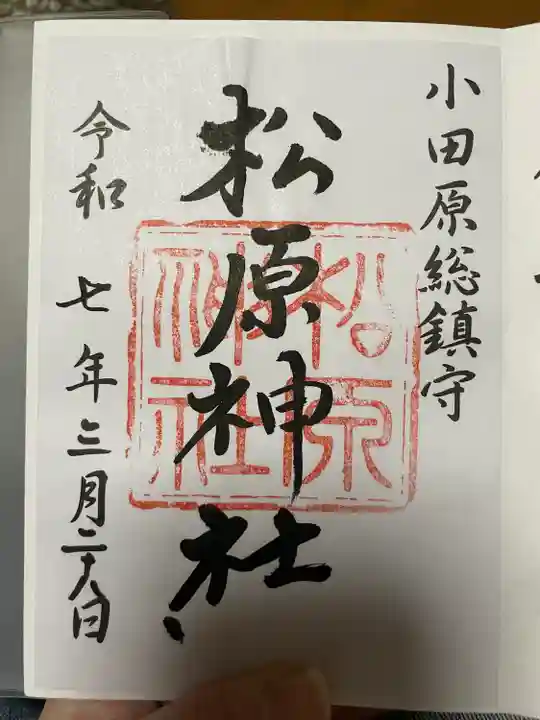 小田原総鎮守
松原神社
松原神社
令和 七年三月二十八日